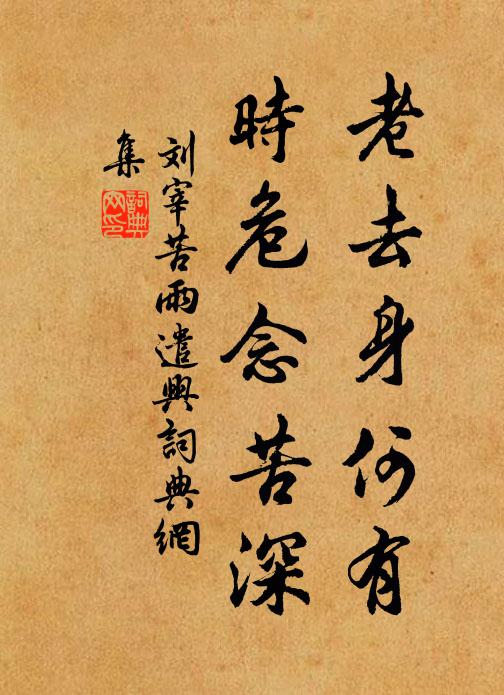 老去身何有
時危念苦深
刘宰苦雨遣興詞典網
集
詞典
网印